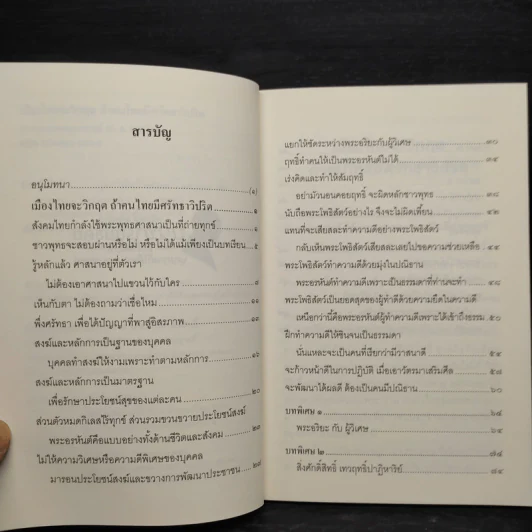 สารบัญ
อนุโมทนา ........ (๑)
เมืองไทยจะวิกฤต ถ้าคนไทยมีศรัทธาวิปริต ........ ๑
สังคมไทยกำลังใช้พระพุทธศาสนาเป็นที่ถ่ายทุกข์
ชาวพุทธจะสอบผ่านหรือไม่ หรือไม่ได้แม้เพียงเป็นบทเรียน .. ๕
รู้หลักแล้ว ศาสนาอยู่ที่ตัวเรา
ไม่ต้องเอาศาสนาไปแขวนไว้กับใคร ........ ๘
เห็นกับตา ไม่ต้องถามว่าเชื่อไหม ........ ๑๑
พึ่งศรัทธา เพื่อได้ปัญญาที่พาสู่อิสรภาพ
สงฆ์และหลักการเป็นฐานของบุคคล
บุคคลทำสงฆ์ให้งามเพราะทำตามหลักการ ........ ๑๖
สงฆ์และหลักการเป็นมาตรฐาน
เพื่อรักษาประโยชน์สุขของแต่ละคน ........ ๒๐
ส่วนตัวหมดกิเลสไร้ทุกข์ ส่วนรวมขวนขวายประโยชน์สงฆ์
พระอรหันต์คือแบบอย่างทั้งด้านชีวิตและสังคม
ไม่ให้ความวิเศษหรือความดีพิเศษของบุคคล
มารอนประโยชน์สงฆ์และขวางการพัฒนาประชาชน
แยกให้ชัดระหว่างพระอริยะกับผู้วิเศษ ........ ๓๐
ฤทธิ์ทำคนให้เป็นพระอรหันต์ไม่ได้ ........ ๓๔
เร่งคิดและทำให้สัมฤทธิ์
อย่ามัวนอนคอยฤทธิ์ จะผิดหลักชาวพุทธ
นับถือพระโพธิสัตว์อย่างไร จึงจะไม่ผิดเพี้ยน ........ ๔๒
แทนที่จะเสียสละทำความดีอย่างพระโพธิสัตว์
กลับเห็นพระโพธิสัตว์เสียสละเลยไปขอความช่วยเหลือ ........ ๔๔
พระโพธิสัตว์ทำความดีด้วยมุ่งในปณิธาน
พระอรหันต์ทำความดีเพราะเป็นธรรมดาที่ท่านจะทำ ........ ๔๘
พระโพธิสัตว์เป็นยอดสุดของผู้ทำดีด้วยความยึดในความดี
เหนือกว่านี้คือพระอรหันต์ผู้ทำความดีเพราะได้เข้าถึงธรรม
ฝึกทำความดีให้ชินจนเป็นธรรมดา
นั่นแหละจะเป็นคนที่เรียกว่ามีวาสนาดี ........ ๕๔
จะก้าวหน้าดีในการปฏิบัติ เมื่อเอาวัตรมาเสริมศีล ........ ๕๘
จะพัฒนาได้ผลดี ต้องเป็นคนมีปณิธาน ........ ๖๐
บทพิเศษ ๑
พระอริยะ กับ ผู้วิเศษ ........ ๖๔
บทพิเศษ ๒ ........ ๗๔
สิ่งศักดิ์สิทธิ์ เทวฤทธิ์ปาฏิหาริย์ ........ ๗๔